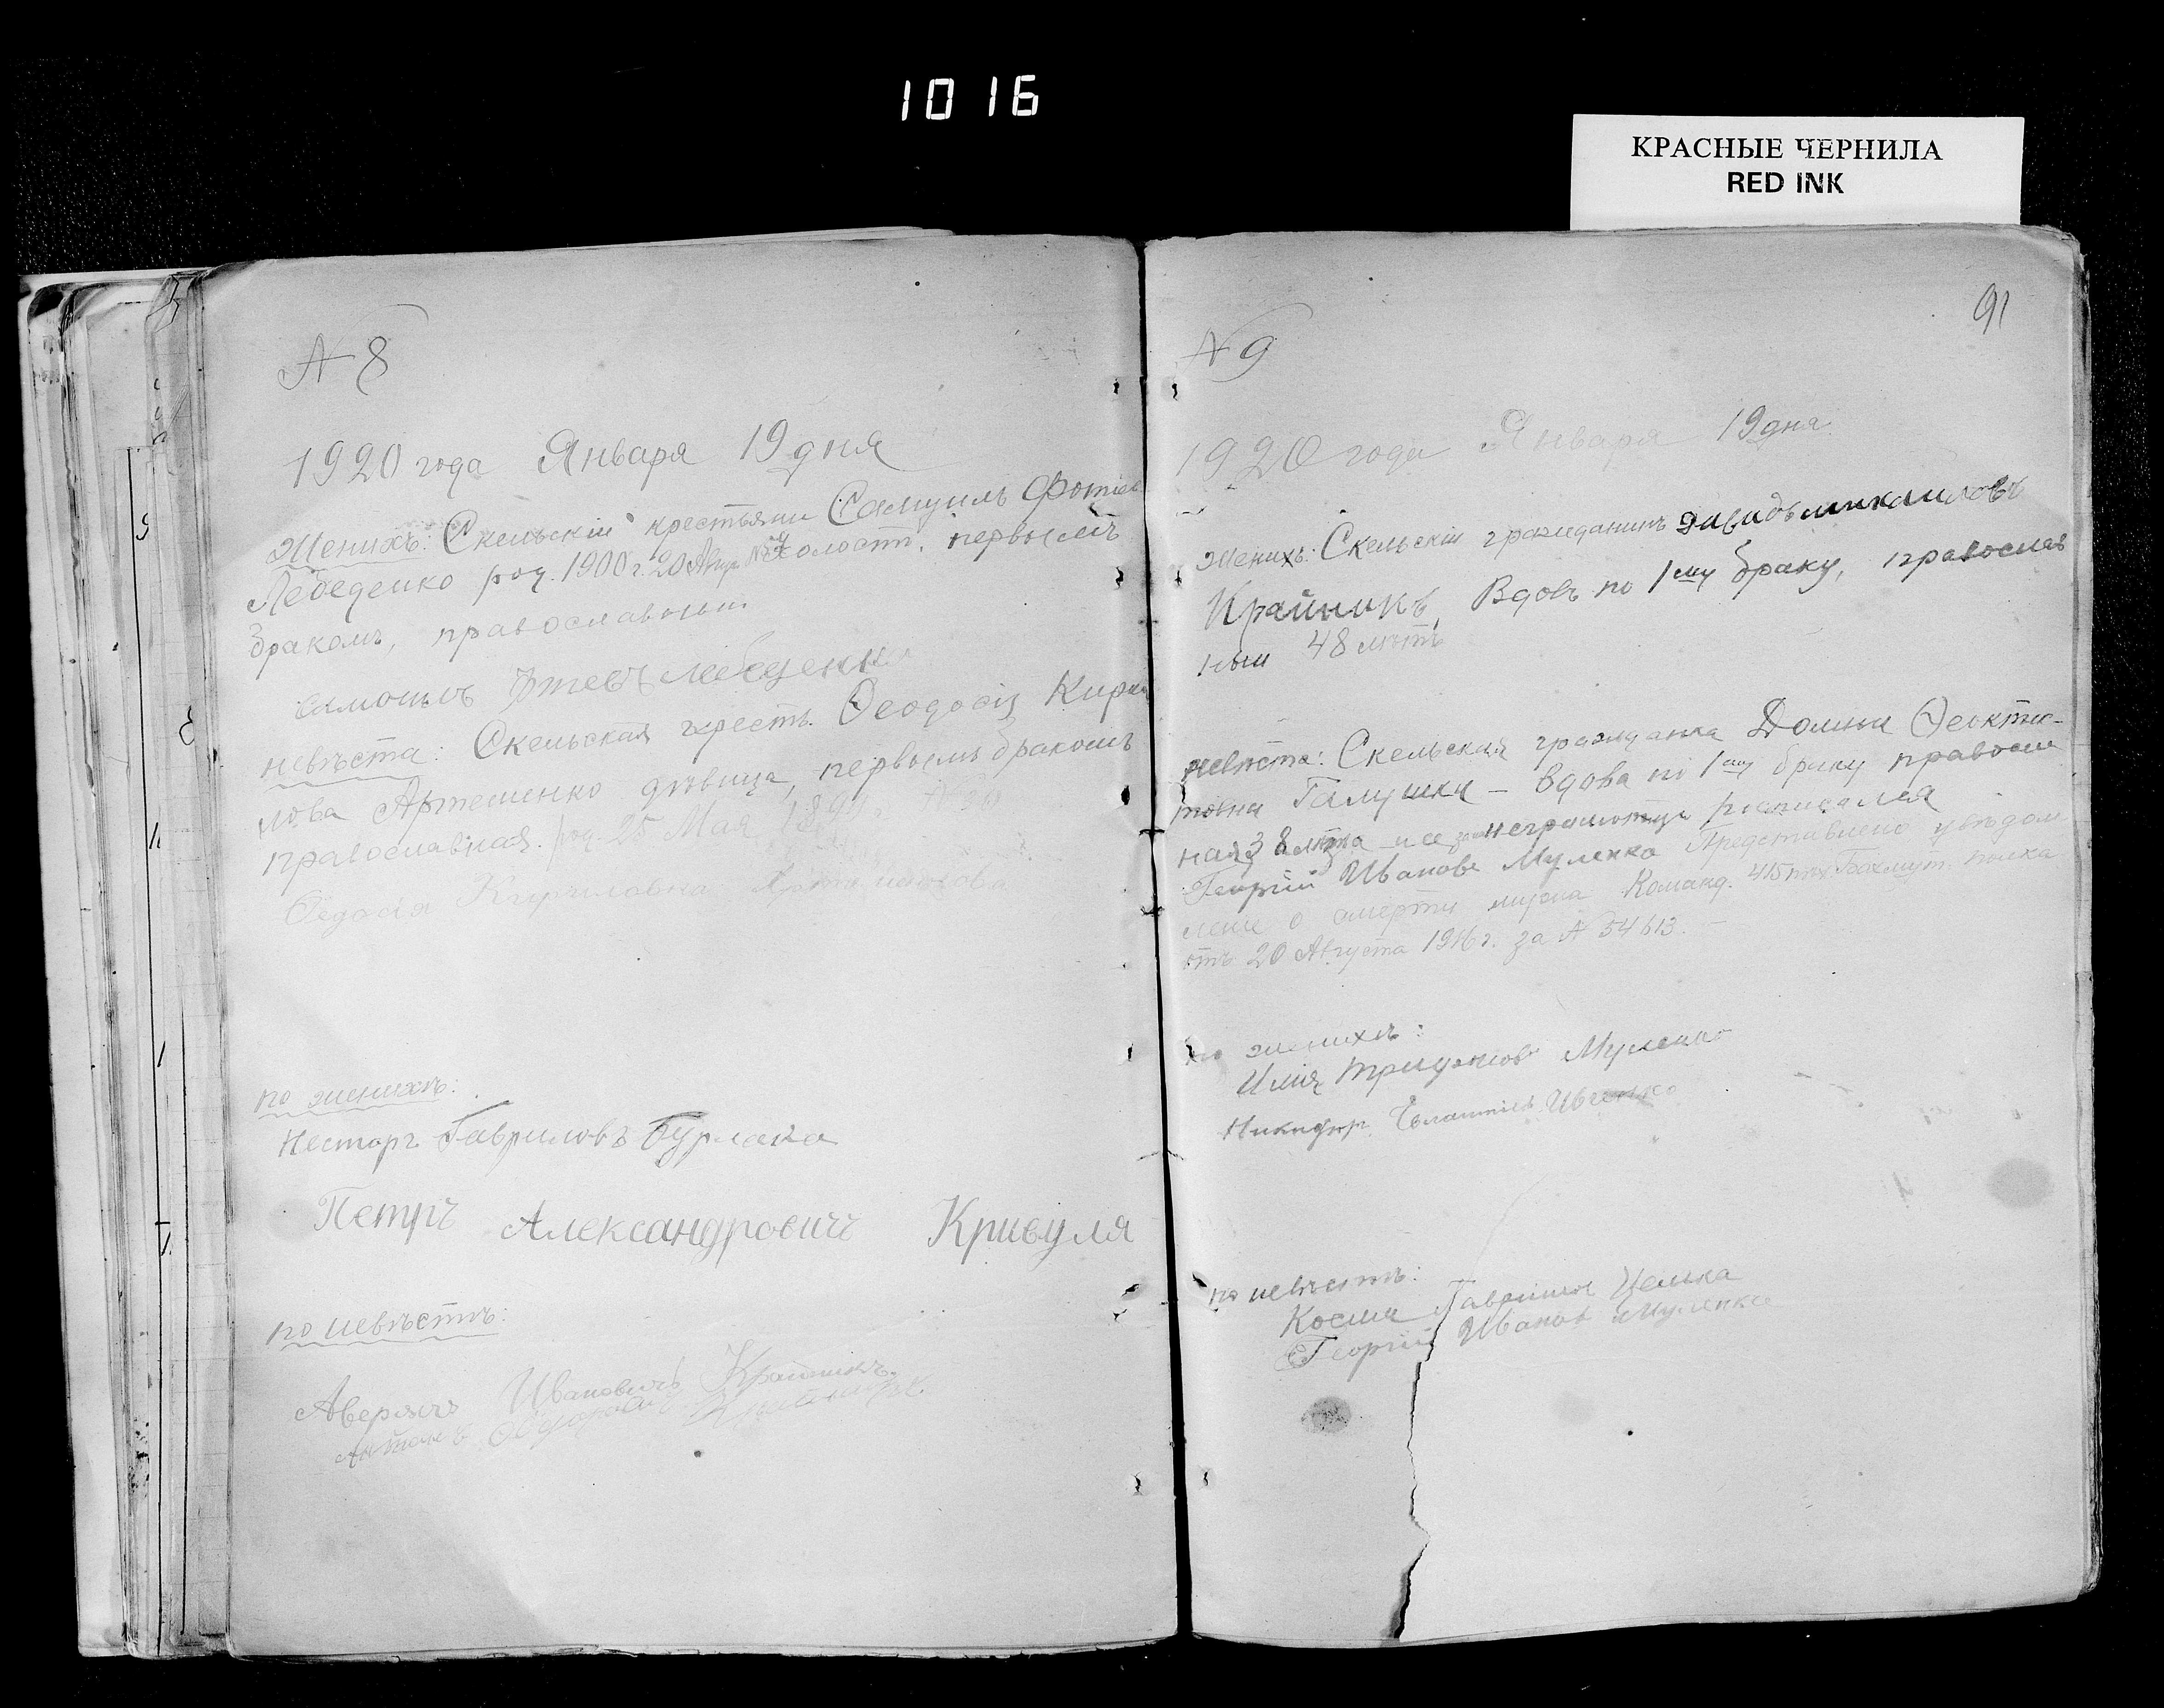 1016
КРАСНЫЕ ЧЕРНИЛА
RED INK
№ 8
1920 года Января 19 дня
Женихъ: Скельскій крестьяни Самуилъ Фотіев
Лебеденко род. 1900 г. 20 холостъ, первымъ
бракомъ, православный
Лебеденко
невѣста: Скельская крест. Ѳеодосія Кирил
лова Артешенко дѣвица, первымъ бракомъ
православная. род. 25 Мая
Кирилловна
по женихѣ:
Несторъ Гавриловъ Бурлака
Петръ Александровичъ Кривуля
по невѣстѣ:
Аверянъ Ивановичъ Крайникъ.
91
№ 9
1920 года Января 19 дня
Женихъ: Скельскій гражданинъ Давидъ Михаиловъ
Крайникъ, Вдовъ по 1ому браку, православ
ный 48 лѣтъ
невѣста: Скельская гражданка Домна Ѳеокти-
стовна Галушка – вдова по 1му браку правосла
ная 38 лѣтъ а за неграмотную росписался
Георгій Иванов Муленко Представлено увѣдом
леніе о смерти мужа Команд. Бахмут полка
отъ 20 Августа 1916 г. за № 54613. –
по женихѣ:
Илія Трифонов Муленко
Никифор Ивченко
по невѣстѣ:
Косма Гаврилов
Георгій Иванов Муленко